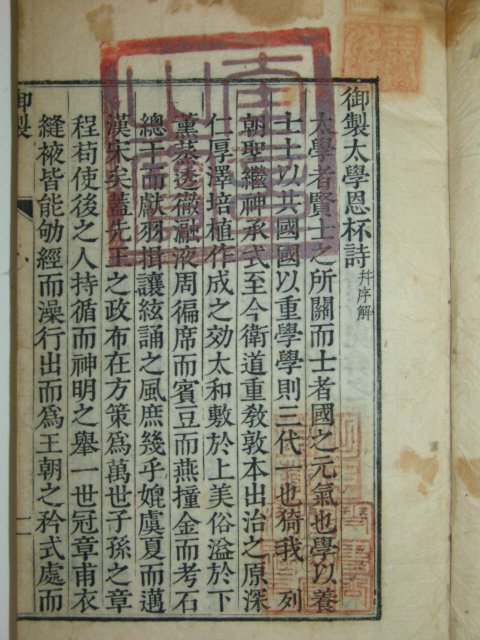 御製太學恩杯詩 幷序解
太學者賢士之所關而士者國之元氣也學以養
士士以共國國以重學學則三代一也猗我 列
朝聖繼神承式至今衛道重敎敦本出治之原深
仁厚澤培植作成之効太和敷於上美俗溢於下
薰蒸透徹瀜液周徧席而賓豆而燕撞金而考石
總干而獻羽揖讓絃誦之風庶幾乎媲虞夏而邁
漢宋矣蓋先王之政布在方策爲萬世子孫之章
程苟使後之人持循而神明之擧一世冠章甫衣
縫掖皆能劬經而澡行出而爲王朝之矜式處而
御製